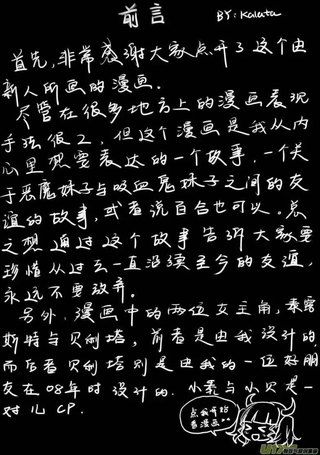 前言
BY:Kalata
首先,非常感谢大家点开了这个由
新人所画的漫画.
尽管在很多地方上的漫画表现
手法很2,但这个漫画是我从内
心里想要表达的一个故事,一个关
于恶魔妹子与吸血鬼妹子之间的友
谊的故事,或者说百合也可以.总
之想通过这个故事告诉大家要
珍惜从过去一直沿续至今的友谊,
永远不要放弃.
另外,漫画中的两位女主角,泰
斯特与贝利塔,前者是由我设计的
而后者贝利塔则是由我的一位好朋
友在08年时设计的.小泰与小贝是一
对儿CP.
点我开始
看漫画..